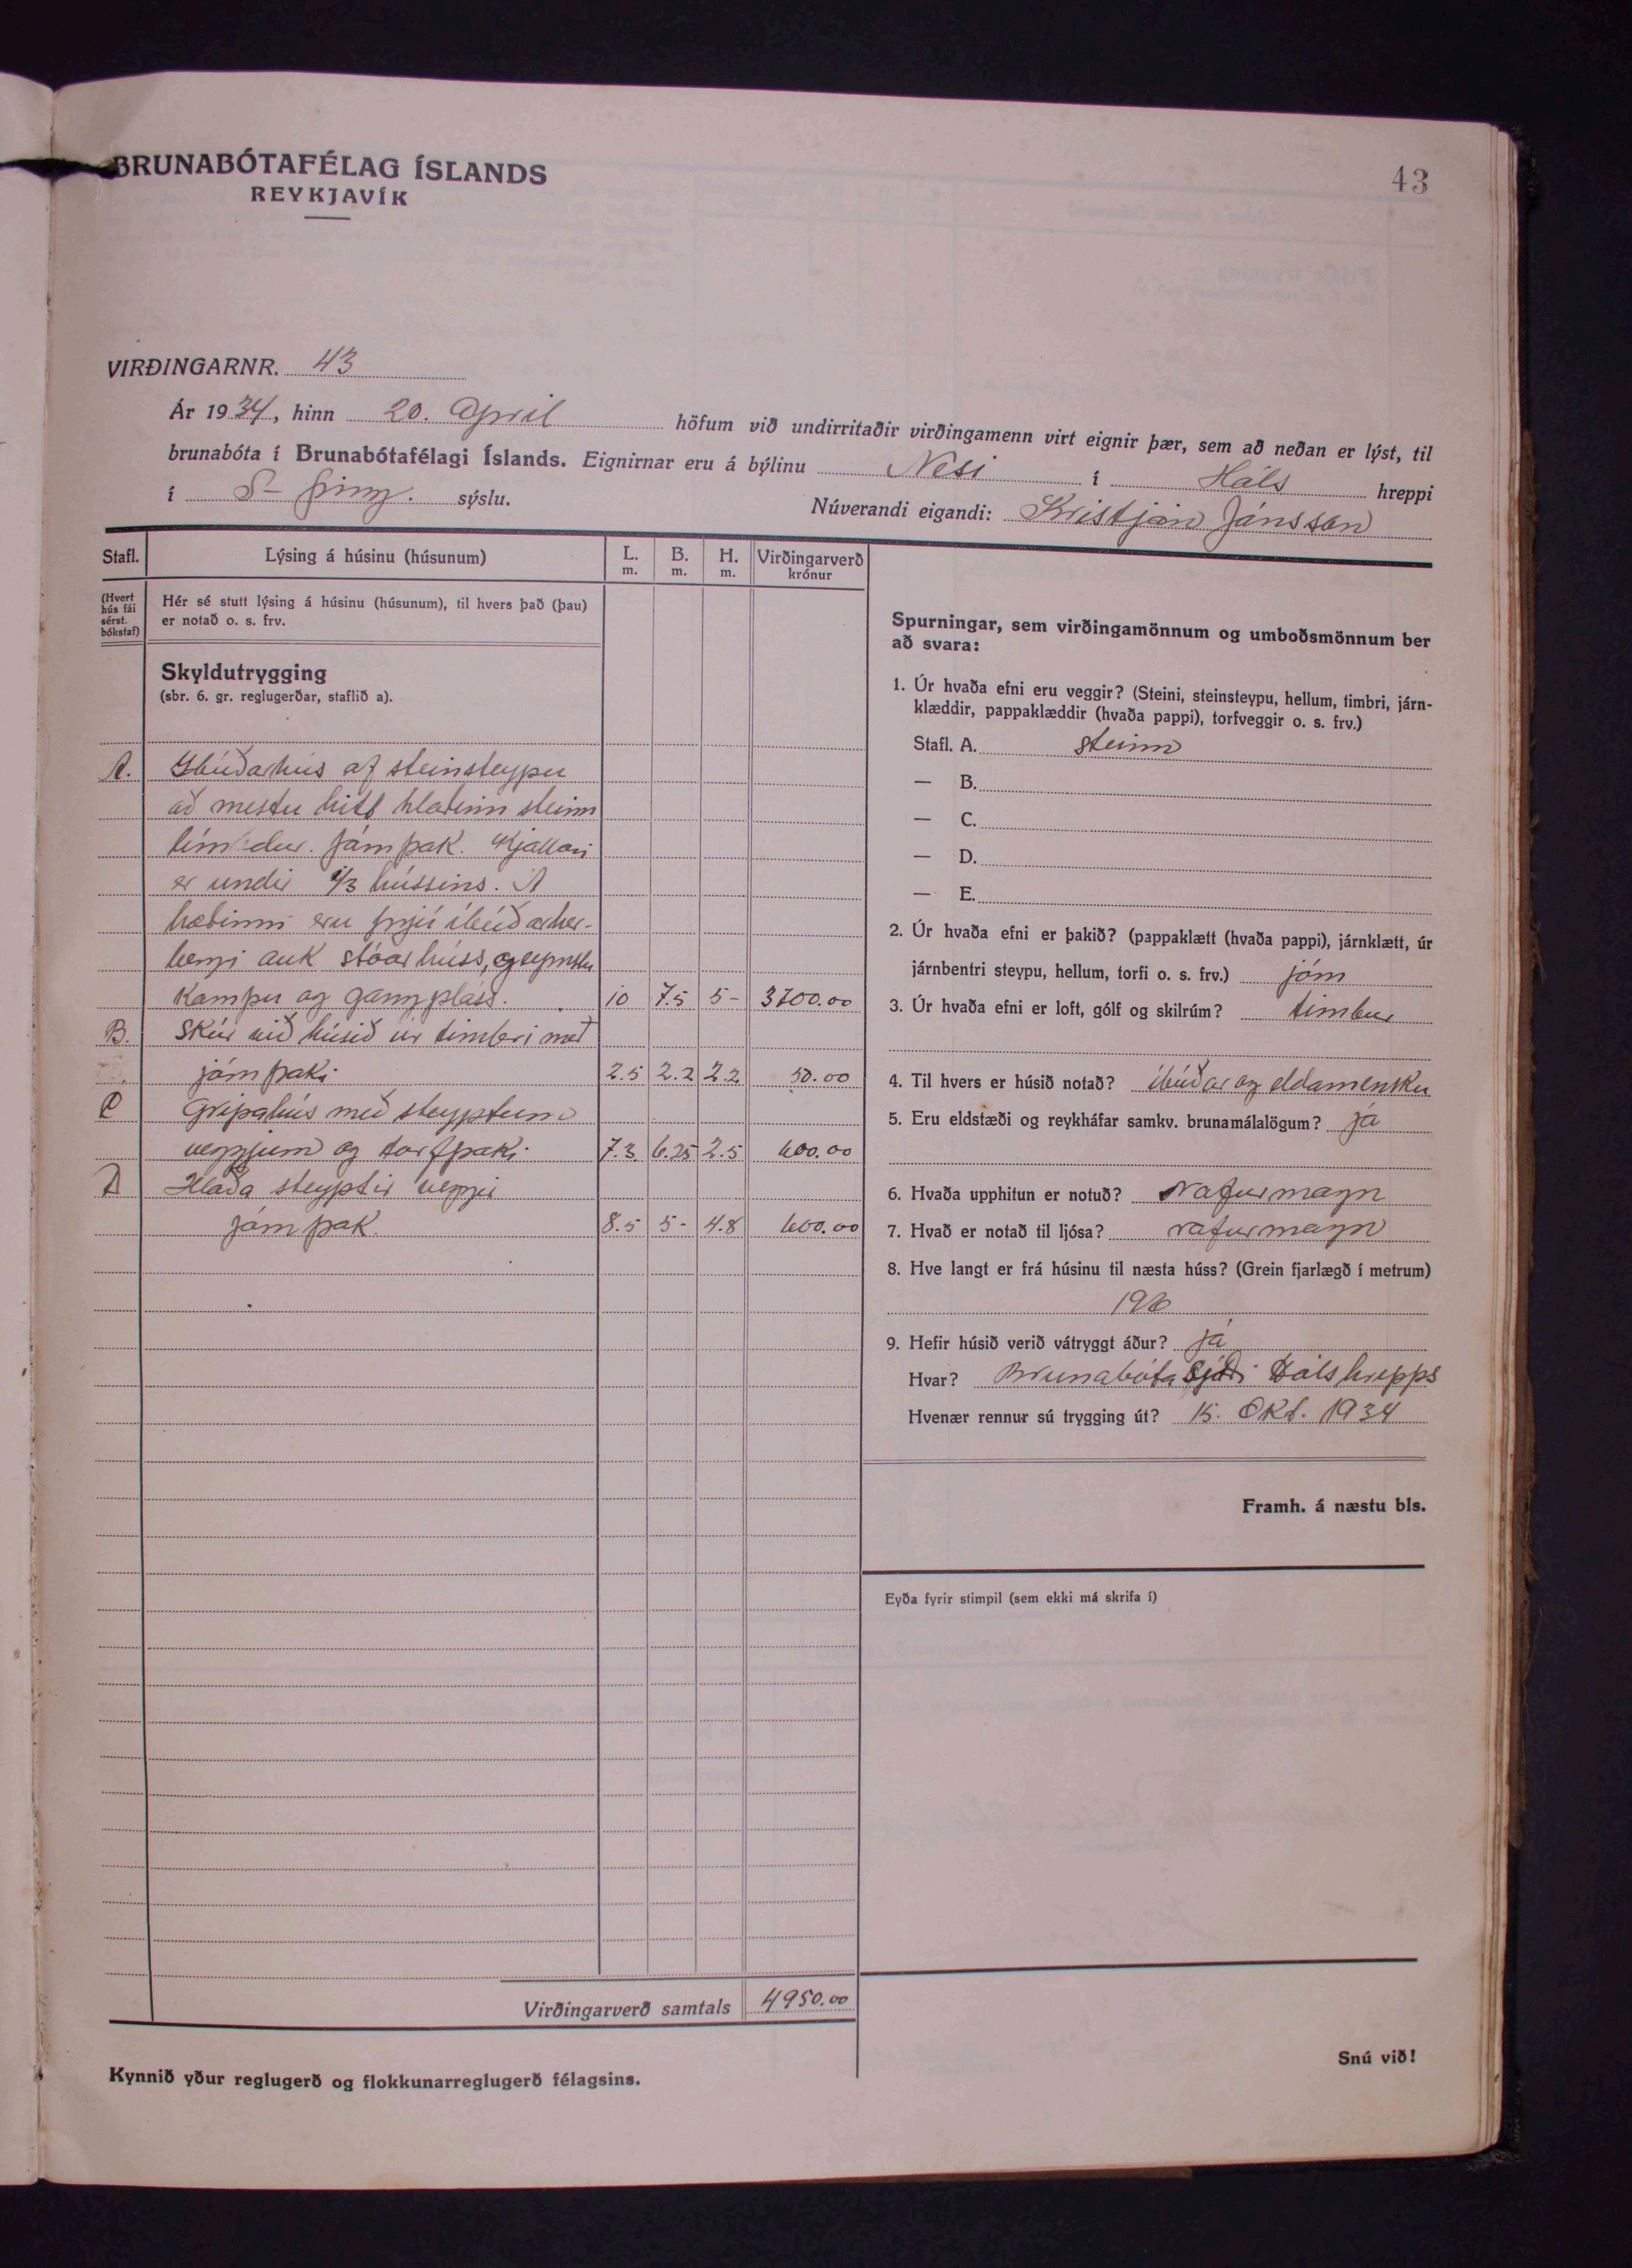 BRUNABÓTAFÉLAG ÍSLANDS
REYKJAVÍK
43
VIRÐINGARNR. 43
Ár 1934, hinn 20. Apríl höfum við undirritaðir virðingamenn virt eignir þær, sem að neðan er lýst, til
brunabóta í Brunabótafélagi Íslands. Eignirnar eru á býlinu Nesi í Háls hreppi
í S- þing. sýslu.
Núverandi eigandi: Kristján Jónsson
Stafl.
Lýsing á húsinu (húsunum)
L. m.
B. m.
H. m.
Virðingarverð krónur
(Hvert hús fái sérst. bókstaf)
Hér sé stutt lýsing á húsinu (húsunum), til hvers það (þau)
er notað o. s. frv.
Skyldutrygging
(sbr. 6. gr. reglugerðar, staflið a).
A. Íbúðarhús af steinsteypu
að mestu hitt hlaðinn steinn
límdur. Járnþak. Kjallari
er undir 1/3 hússins. Á
hæðinni eru þrjú íbúðarher-
bergi auk stóarhúss, og
kampu og gangpláss. 10 7.5 5- 3700.00
B. Skúr við húsið úr timbri með
járnþaki 2.5 2.2 2.2 50.00
C Gripahús með steyptum
veggjum og torfþaki 7.3 6.25 2.5 600.00
D Hlaða steyptir veggir
járnþak. 8.5 5- 4.8 600.00
Virðingarverð samtals 4950.00
Kynnið yður reglugerð og flokkunarreglugerð félagsins.
Spurningar, sem virðingamönnum og umboðsmönnum ber
að svara:
1. Úr hvaða efni eru veggir? (Steini, steinsteypu, hellum, timbri, járn-
klæddir, pappaklæddir (hvaða pappi), torfveggir o. s. frv.)
Stafl. A. steinn
— B.
— C.
— D.
— E.
2. Úr hvaða efni er þakið? (pappaklætt (hvaða pappi), járnklætt, úr
járnbentri steypu, hellum, torfi o. s. frv.) járn
3. Úr hvaða efni er loft, gólf og skilrúm? timbur
4. Til hvers er húsið notað? íbúðar og eldamensku
5. Eru eldstæði og reykháfar samkv. brunamálalögum? já
6. Hvaða upphitun er notuð? Rafurmagn
7. Hvað er notað til ljósa? rafurmagn
8. Hve langt er frá húsinu til næsta húss? (Grein fjarlægð í metrum)
9. Hefir húsið verið vátryggt áður? já
Hvar? Brunabótasjóði Hálshrepps
Hvenær rennur sú trygging út? 15. Okt. 1934
Framh. á næstu bls.
Eyða fyrir stimpil (sem ekki má skrifa í)
Snú við!